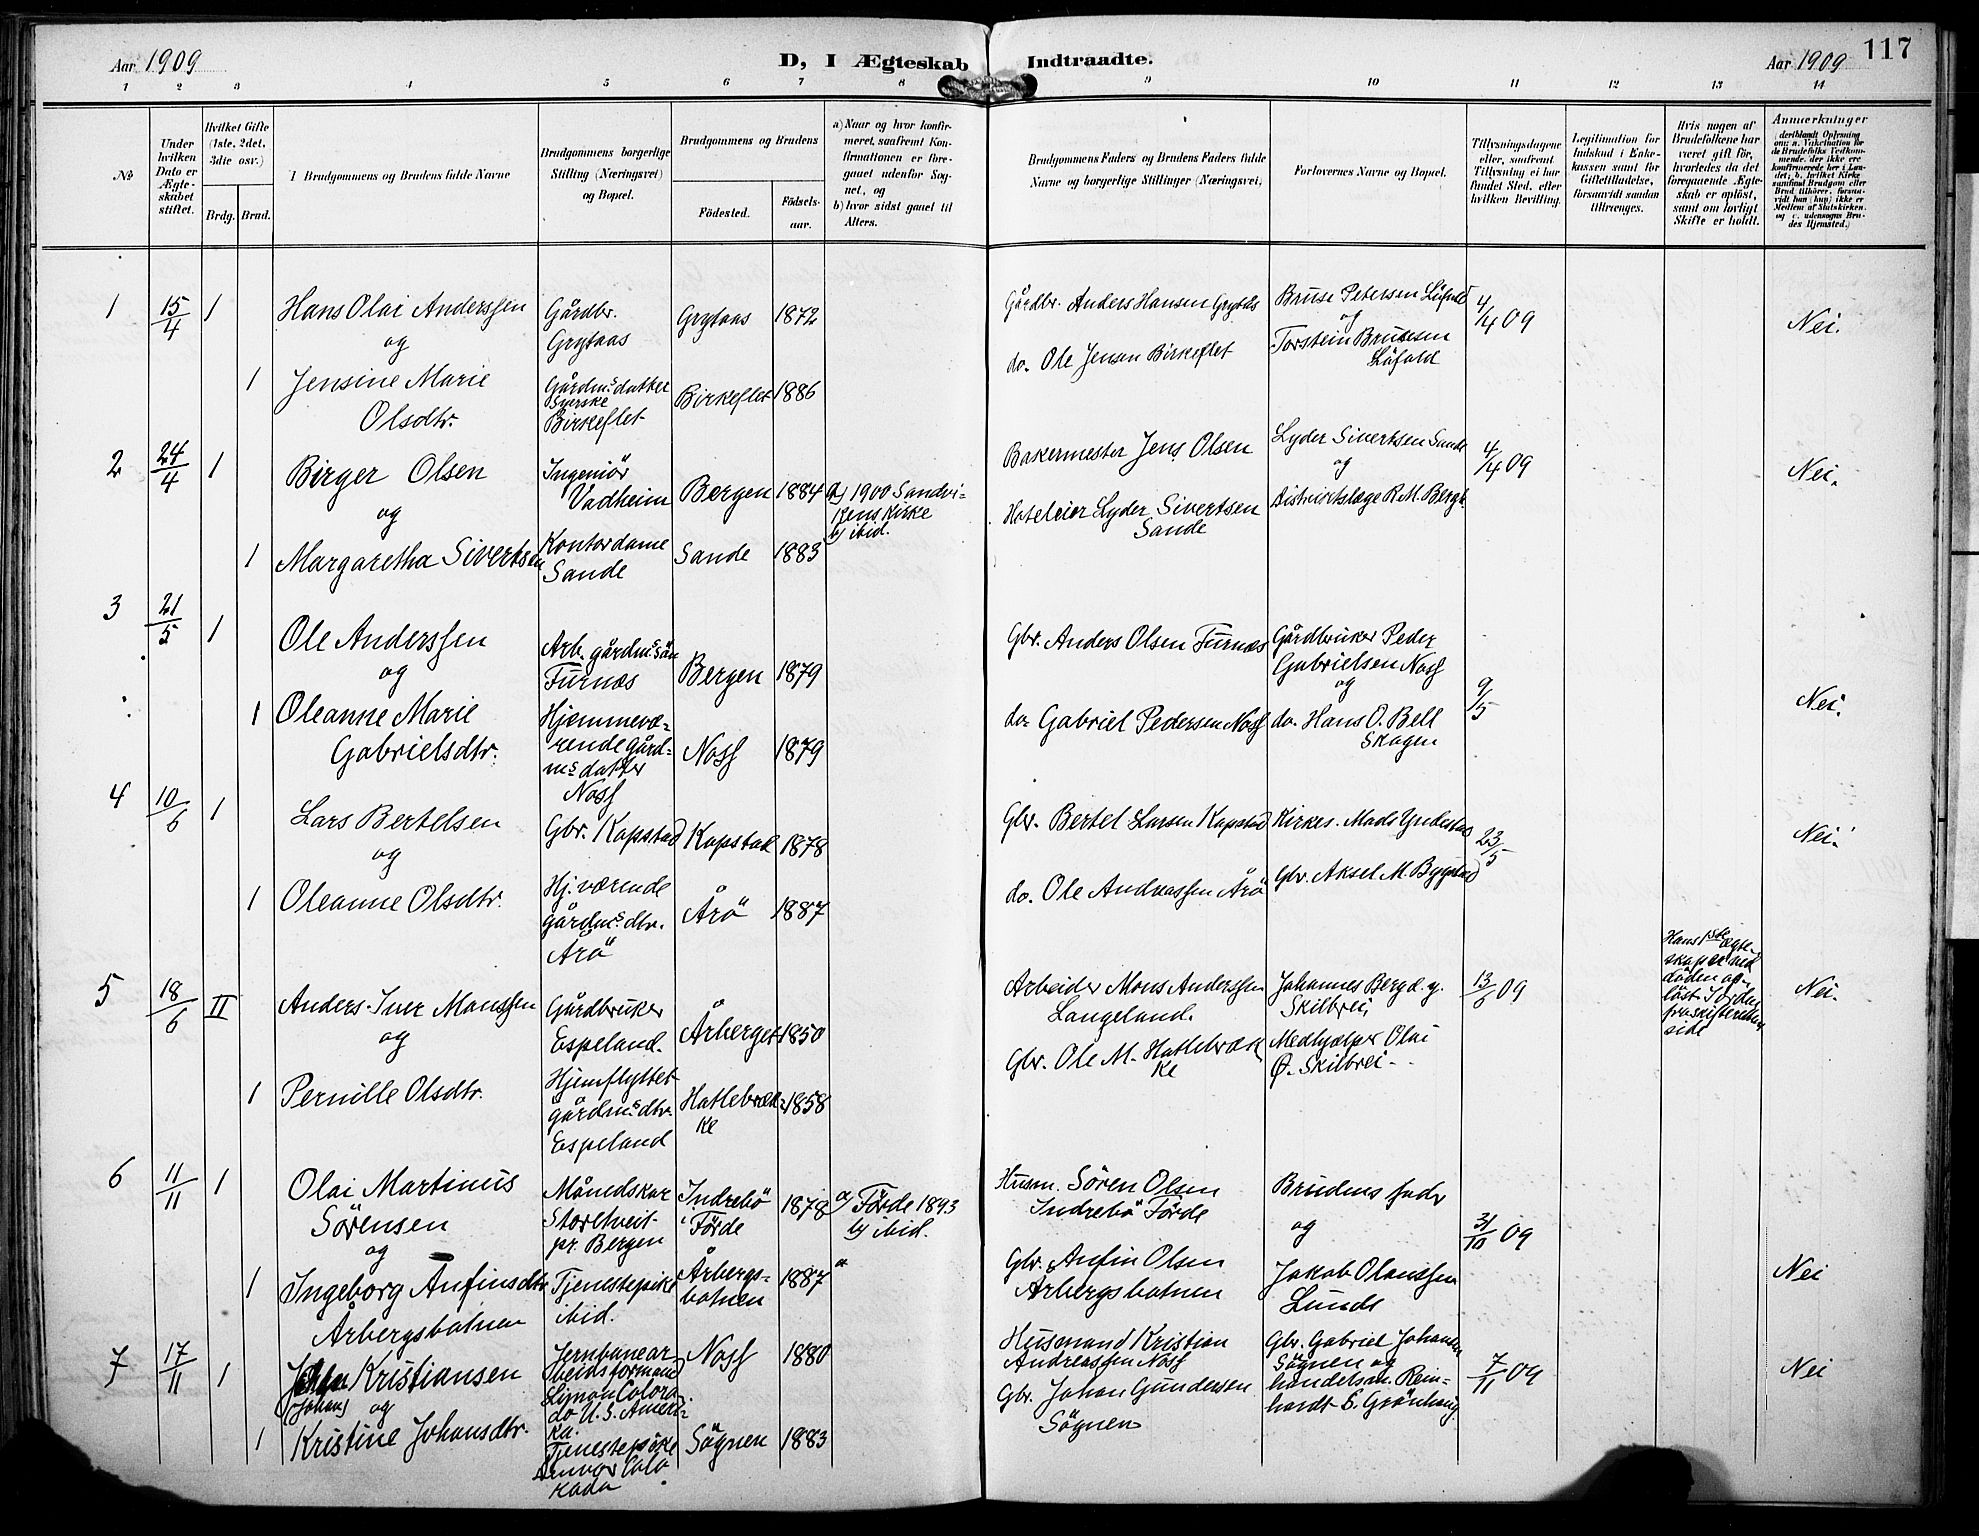 Aar 1909
D, I Ægteskab Indtraadte.
Aar 1909
117
1 2 3 4 5 6 7 8 9 10 11 12 13 14
№
Under hvilken Dato er Ægteskabet stiftet.
Hvilket Gifte (1ste, 2det, 3dte osv.)
Brdg. Brud.
Brudgommens og Brudens fulde Navne
Brudgommens borgerlige Stilling (Næringsvei) og Bopæl.
Brudgommens og Brudens
Fødested.
Fødselsaar.
a) Naar og hvor konfirmeret, saafremt Konfirmationen er foregaaet udenfor Sognet, og
b) hvor sidst gaaet til Alters.
Brudgommens Faders og Brudens Faders fulde Navne og borgerlige Stillinger (Næringsvei)
Forlovernes Navne og Bopæl.
Tillysningsdagene eller, saafremt Tillysning ei har fundet Sted, efter hvilken Bevilling.
Legitimation for Indskud i Enkekassen samt for Giftetilladelse, forsaavidt saadan tiltrænges.
Hvis nogen af Brudefolkene har været gift før, hvorledes da det foregaaende Ægteskab er opløst, samt om lovligt Skifte er holdt.
Anmerkninger
1 15/4 1
Hans Olai Anderssen
og
Gårdbr.
Grytaas
Grytaas 1872
Gårdbr. Anders Hansen Grytås
Bruse Petersen
og
Torstein Brusesen
4/4 09
Nei.
1 Jensine Marie
Olsdtr.
Gårdms datter
Syerske
Birkeflet
Birkeflet 1886
do. Ole Jensen Birkeflet
2 24/4 1
Birger Olsen
og
Ingeniör
Vadheim
Bergen 1884
a) 1900 Sandvi-
kens Kirke
b) ibid.
Bakermester Jens Olsen
Lyder Sivertsen Sande
og
Distriktslæge R. M. Bergh
4/4 09
Nei.
1 Margaretha Sivertsen
Kontordame
Sande
Sande 1883
Hoteleier Lyder Sivertsen
Sande
3 21/5 1
Ole Anderssen
og
Arb. gårdms sön
Furnæs
Bergen 1879
Gbr. Anders Olsen Furnæs
Gårdbruker Peder
Gabrielsen Noss
og
9/5
Nei.
1 Oleanne Marie
Gabrielsdtr.
Hjemmevæ-
rende gård-
ms datter
Noss
Noss 1879
do. Gabriel Pedersen Noss
do. Hans O. Bell
Skogen
4 10/6 1
Lars Bertelsen
og
Gbr. Kapstad
Kapstad 1878
Gbr. Bertel Larsen Kapstad
Kirkes. Mads Yndestad
23/5
Nei.
1 Oleanne Olsdtr.
Hj. værende
gårdms dtr.
Årö
Årö 1887
do. Ole Andreassen Årö
Gbr. Aksel M. Bygstad
5 18/6 II
Anders Iver Monssen
og
Gårdbruker
Espeland.
Årberget 1850
Arbeider Mons Anderssen
Langeland.
Johannes Berg d. y.
Skilbrei
13/6 09
Hans 1ste ægte-
skap er ved
döden op-
löst. I orden
fra skifterettens
side
Nei.
1 Pernille Olsdtr.
Hjemflyttet
gårdms dtr.
Espeland
Hatlebræk-
ke
1858
Gbr. Ole M. Hatlebræk
ke
Medhjælper Olai
Ø. Skilbrei
6 11/11 1
Olai Martinus
Sörensen
og
Månedskar
Storetveit
pr. Bergen
Indrebö
i Förde
1878
a) Förde 1893
b) ibid.
Husm. Sören Olsen
Indrebö Förde
Brudens fader
og
31/10 09
1 Ingeborg Anfinsdtr
Årbergsbotnen
Tjenestepike
ibid.
Årbergs-
botnen
1887
Gbr. Anfin Olsen
Årbergsbotnen
Jakob Olaussen
Lunde
Nei
7 17/11 1
Kristiansen
(Johan) og
Jernbanear-
beidsformand
Limon Colora-
do U. S. Ameri-
ka.
Noss 1880
Husmand Kristian
Andreassen Noss
Gbr. Gabriel Johansen
Sögnen og
handelsm. Rein-
hardt S. Grönhaug
7/11 09
Nei
1 Kristine Johansdtr.
Tjenestepike
Colo
rado
Sögnen 1883
Gbr. Johan Gundersen
Sögnen